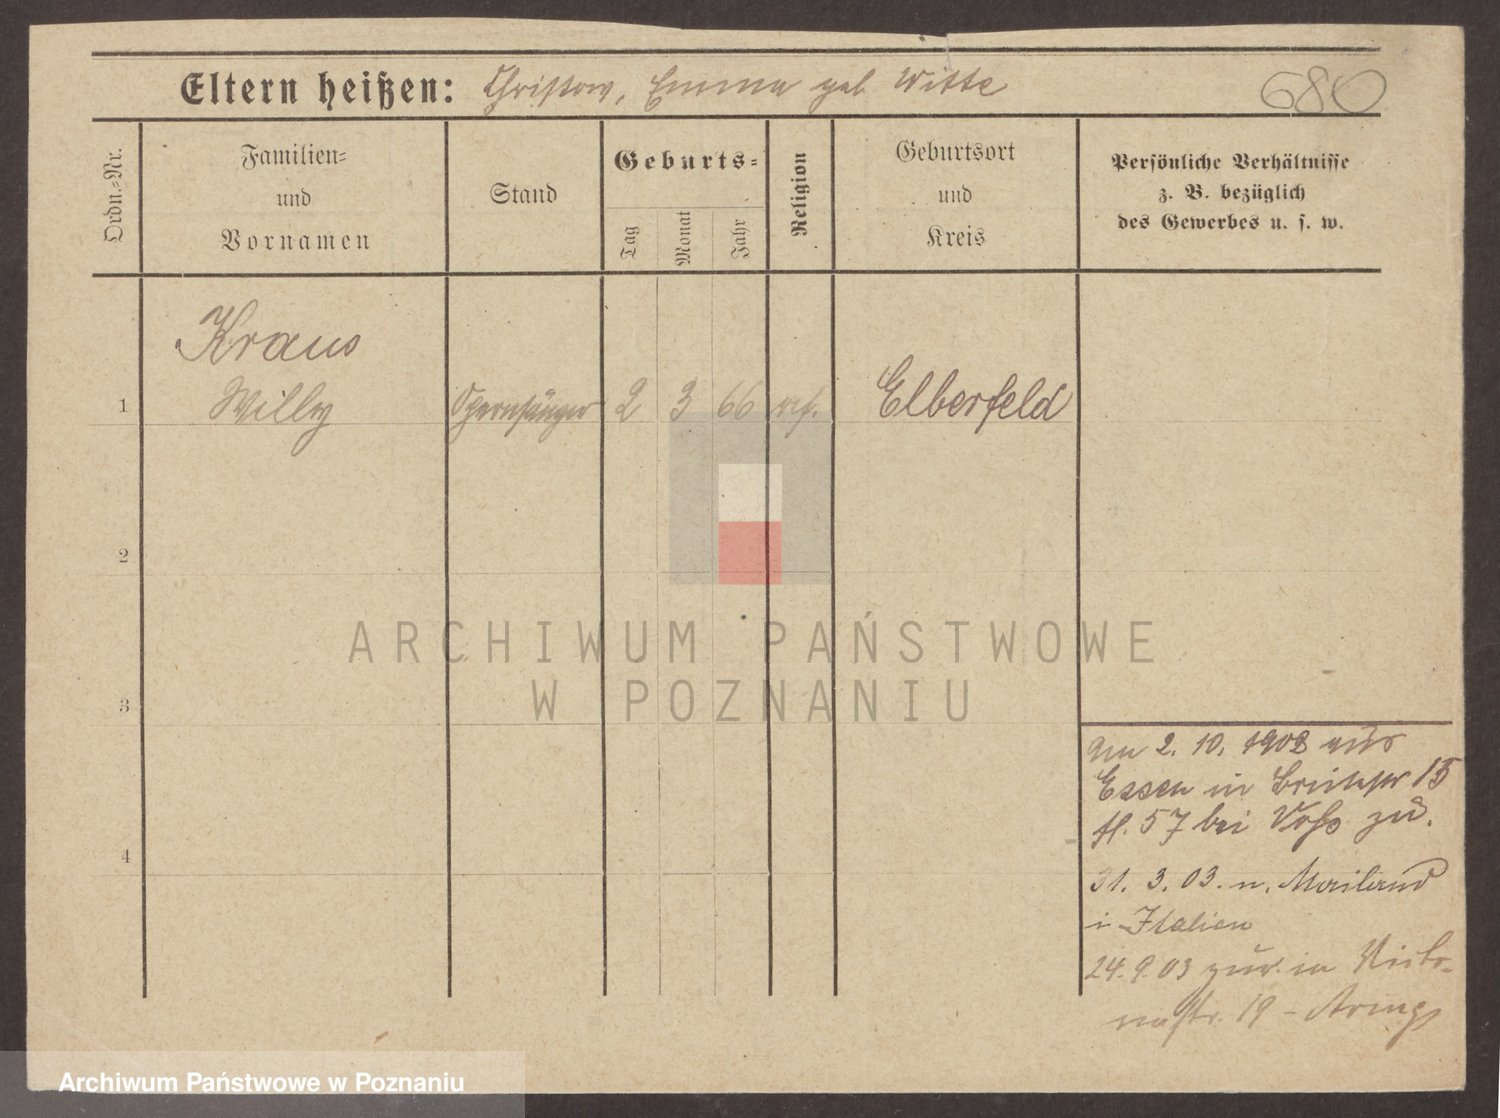 Eltern heißen: Christow, Emma geb Witte
680
Ordn.-Nr.
Familien-
und
Vornamen
Stand
Geburts-
Tag
Monat
Jahr
Religion
Geburtsort
und
Kreis
Persönliche Verhältnisse
z. B. bezüglich
des Gewerbes u. s. w.
Kraus
1 Willy Opernsänger 2 3 66 ref. Elberfeld
2
3
4
Am 2. 10. 1902 aus
Essen in 15
57 bei Voß zu.
31. 3. 03. n. Mailand
i Italien
24. 9. 03 zur. in
19 -
ARCHIWUM PAŃSTWOWE
W POZNANIU
Archiwum Państwowe w Poznaniu